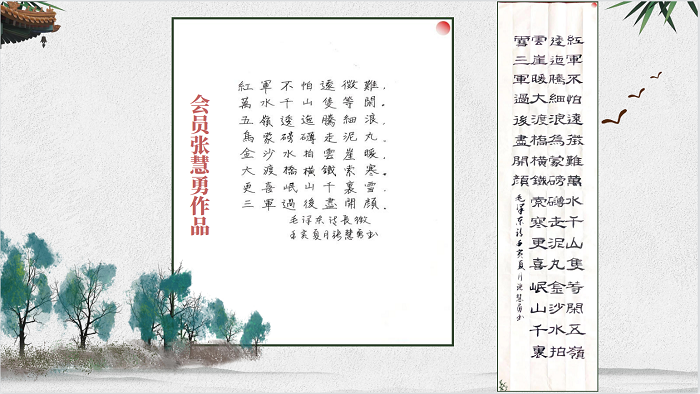 会员张慧勇作品
紅軍不怕遠徵難，
萬水千山隻等閑。
五嶺逶迤騰細浪，
烏蒙磅礴走泥丸。
金沙水拍雲崖暖，
大渡橋橫鐵索寒。
更喜岷山千裏雪，
三軍過後盡開顏。
毛澤東詩長徵
壬寅夏月張慧勇書
紅軍不怕遠徵難萬水千山隻等閑五嶺
逶迤騰細浪烏蒙磅礴走泥丸金沙水拍
雲崖暖大渡橋橫鐵索寒更喜岷山千裏
雪三軍過後盡開顏
毛澤東詩壬寅夏月張慧勇書